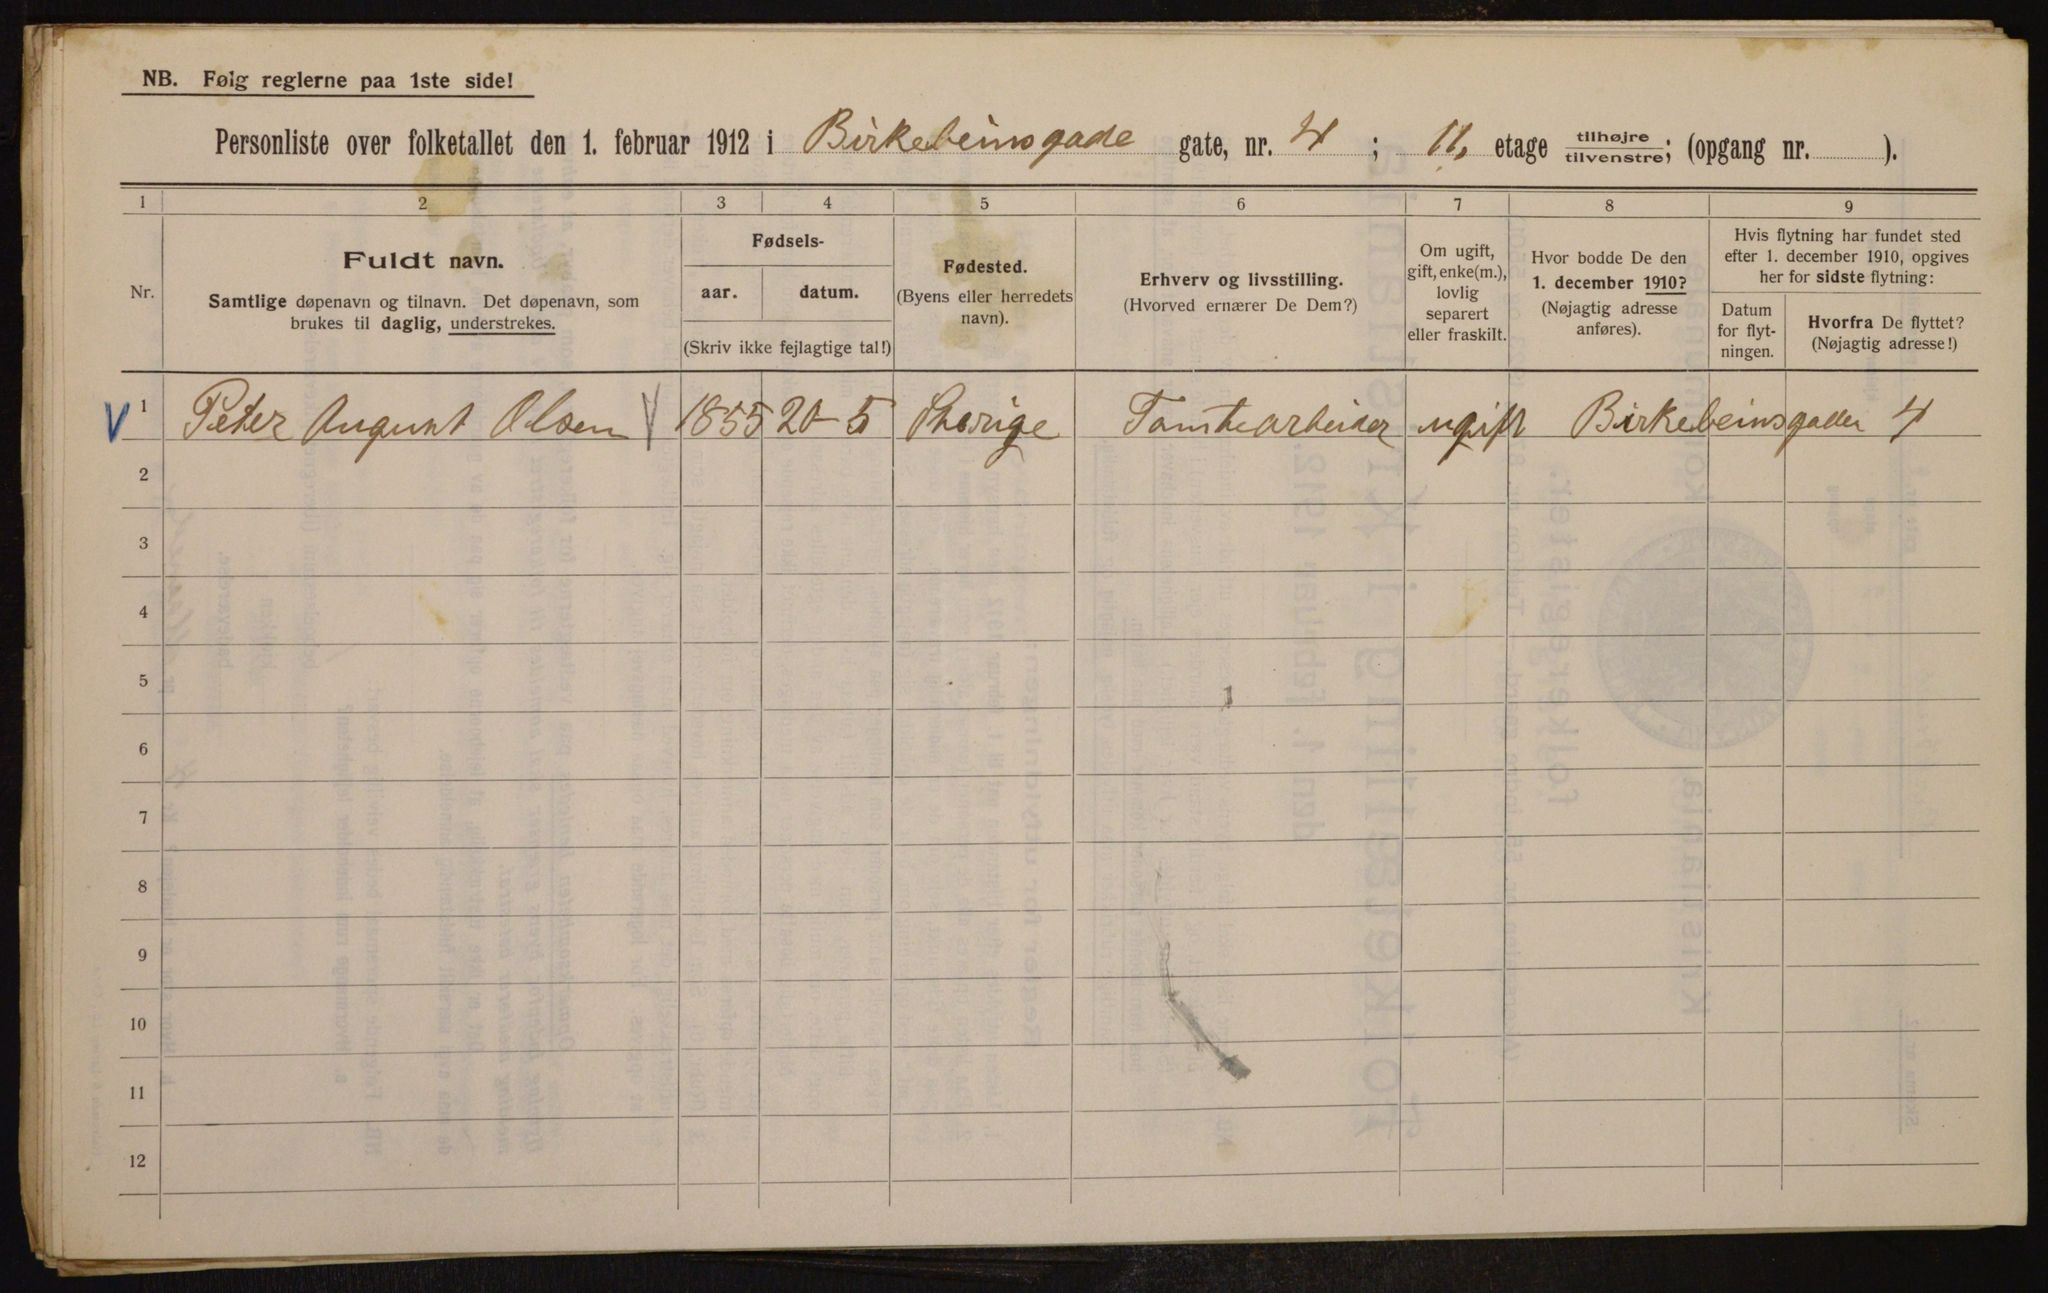 NB. Følg reglerne paa 1ste side!
Personliste over folketallet den 1. februar 1912 i Birkebeinsgade gate, nr. 4 ; 11, etage tilhøjre/tilvenstre; (opgang nr. ).
1 2 3 4 5 6 7 8 9
Nr.
Fuldt navn.
Samtlige døpenavn og tilnavn. Det døpenavn, som
brukes til daglig, understrekes.
Fødsels-
aar. datum.
(Skriv ikke fejlagtige tal!)
Fødested.
(Byens eller herredets
navn).
Erhverv og livsstilling.
(Hvorved ernærer De Dem?)
Om ugift,
gift, enke(m.),
lovlig
separert
eller fraskilt.
Hvor bodde De den
1. december 1910?
(Nøjagtig adresse
anføres).
Hvis flytning har fundet sted
efter 1. december 1910, opgives
her for sidste flytning:
Datum
for flyt-
ningen.
Hvorfra De flyttet?
(Nøjagtig adresse!)
V 1 Peter August Olsen 1855 20-5 Sverige Tomtearbeider ugift Birkebeinsgaden 4
2
3
4
5
6
7
8
9
10
11
12